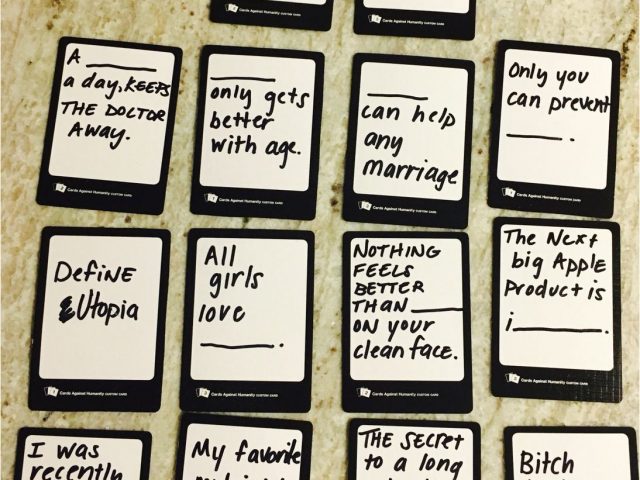 Cards Against Humanity CUSTOM CARD
Cards Against Humanity CUSTOM CARD
A ______
a day, KEEPS
THE DOCTOR
AWAY.
Cards Against Humanity CUSTOM CARD
______
only gets
better
with age.
Cards Against Humanity CUSTOM CARD
______
can help
any
marriage
Cards Against Humanity CUSTOM CARD
Only you
can prevent
______.
Cards Against Humanity CUSTOM CARD
DEFINE
Utopia
Cards Against Humanity CUSTOM CARD
All
girls
love
______.
Cards Against Humanity CUSTOM CARD
NOTHING
FEELS
BETTER
THAN ______
ON YOUR
clean face.
Cards Against Humanity CUSTOM CARD
The Next
big Apple
Product is
i______.
Cards Against Humanity CUSTOM CARD
I was
recently
My favorite
THE SECRET
to a long
Bitch